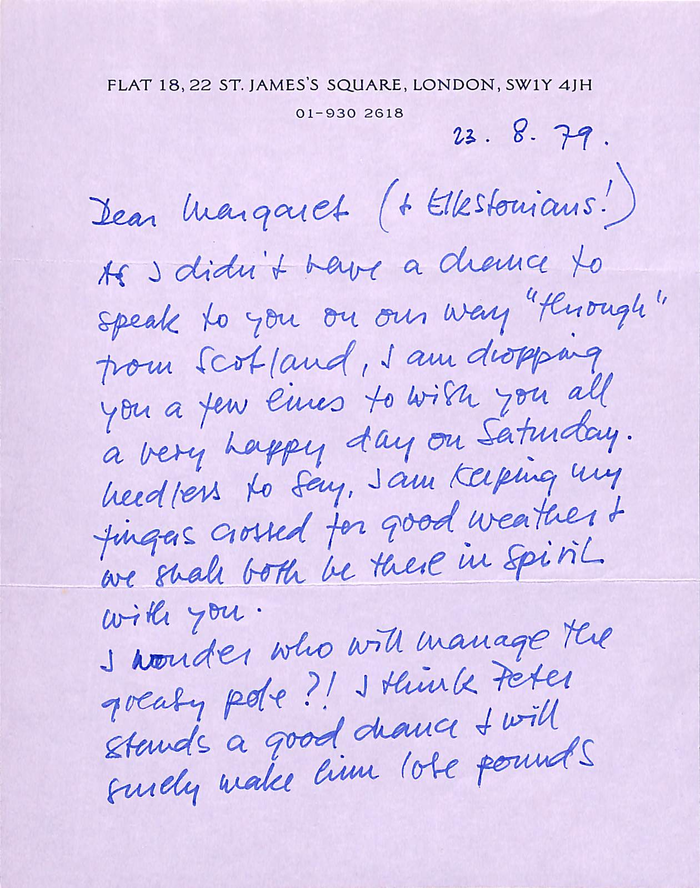 FLAT 18, 22 ST. JAMES'S SQUARE, LONDON, SW1Y 4JH
01-930 2618
23. 8. 79.
Dear Margaret (+ Elkstonians!)
As I didn't have a chance to
speak to you on our way "through"
from Scotland, I am dropping
you a few lines to wish you all
a very happy day on Saturday.
Needless to say, I am keeping my
fingers crossed for good weather +
we shall both be there in spirit
with you.
I wonder who will manage the
greasy pole?! I think Peter
stands a good chance + will
surely make him lose pounds